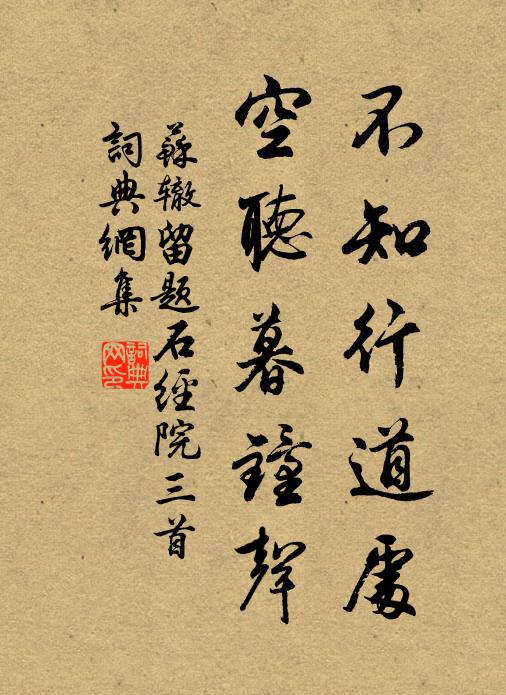 不知行道處
空聽暮鐘聲
蘇辙留题石經院三首
詞典網集
詞典
网印